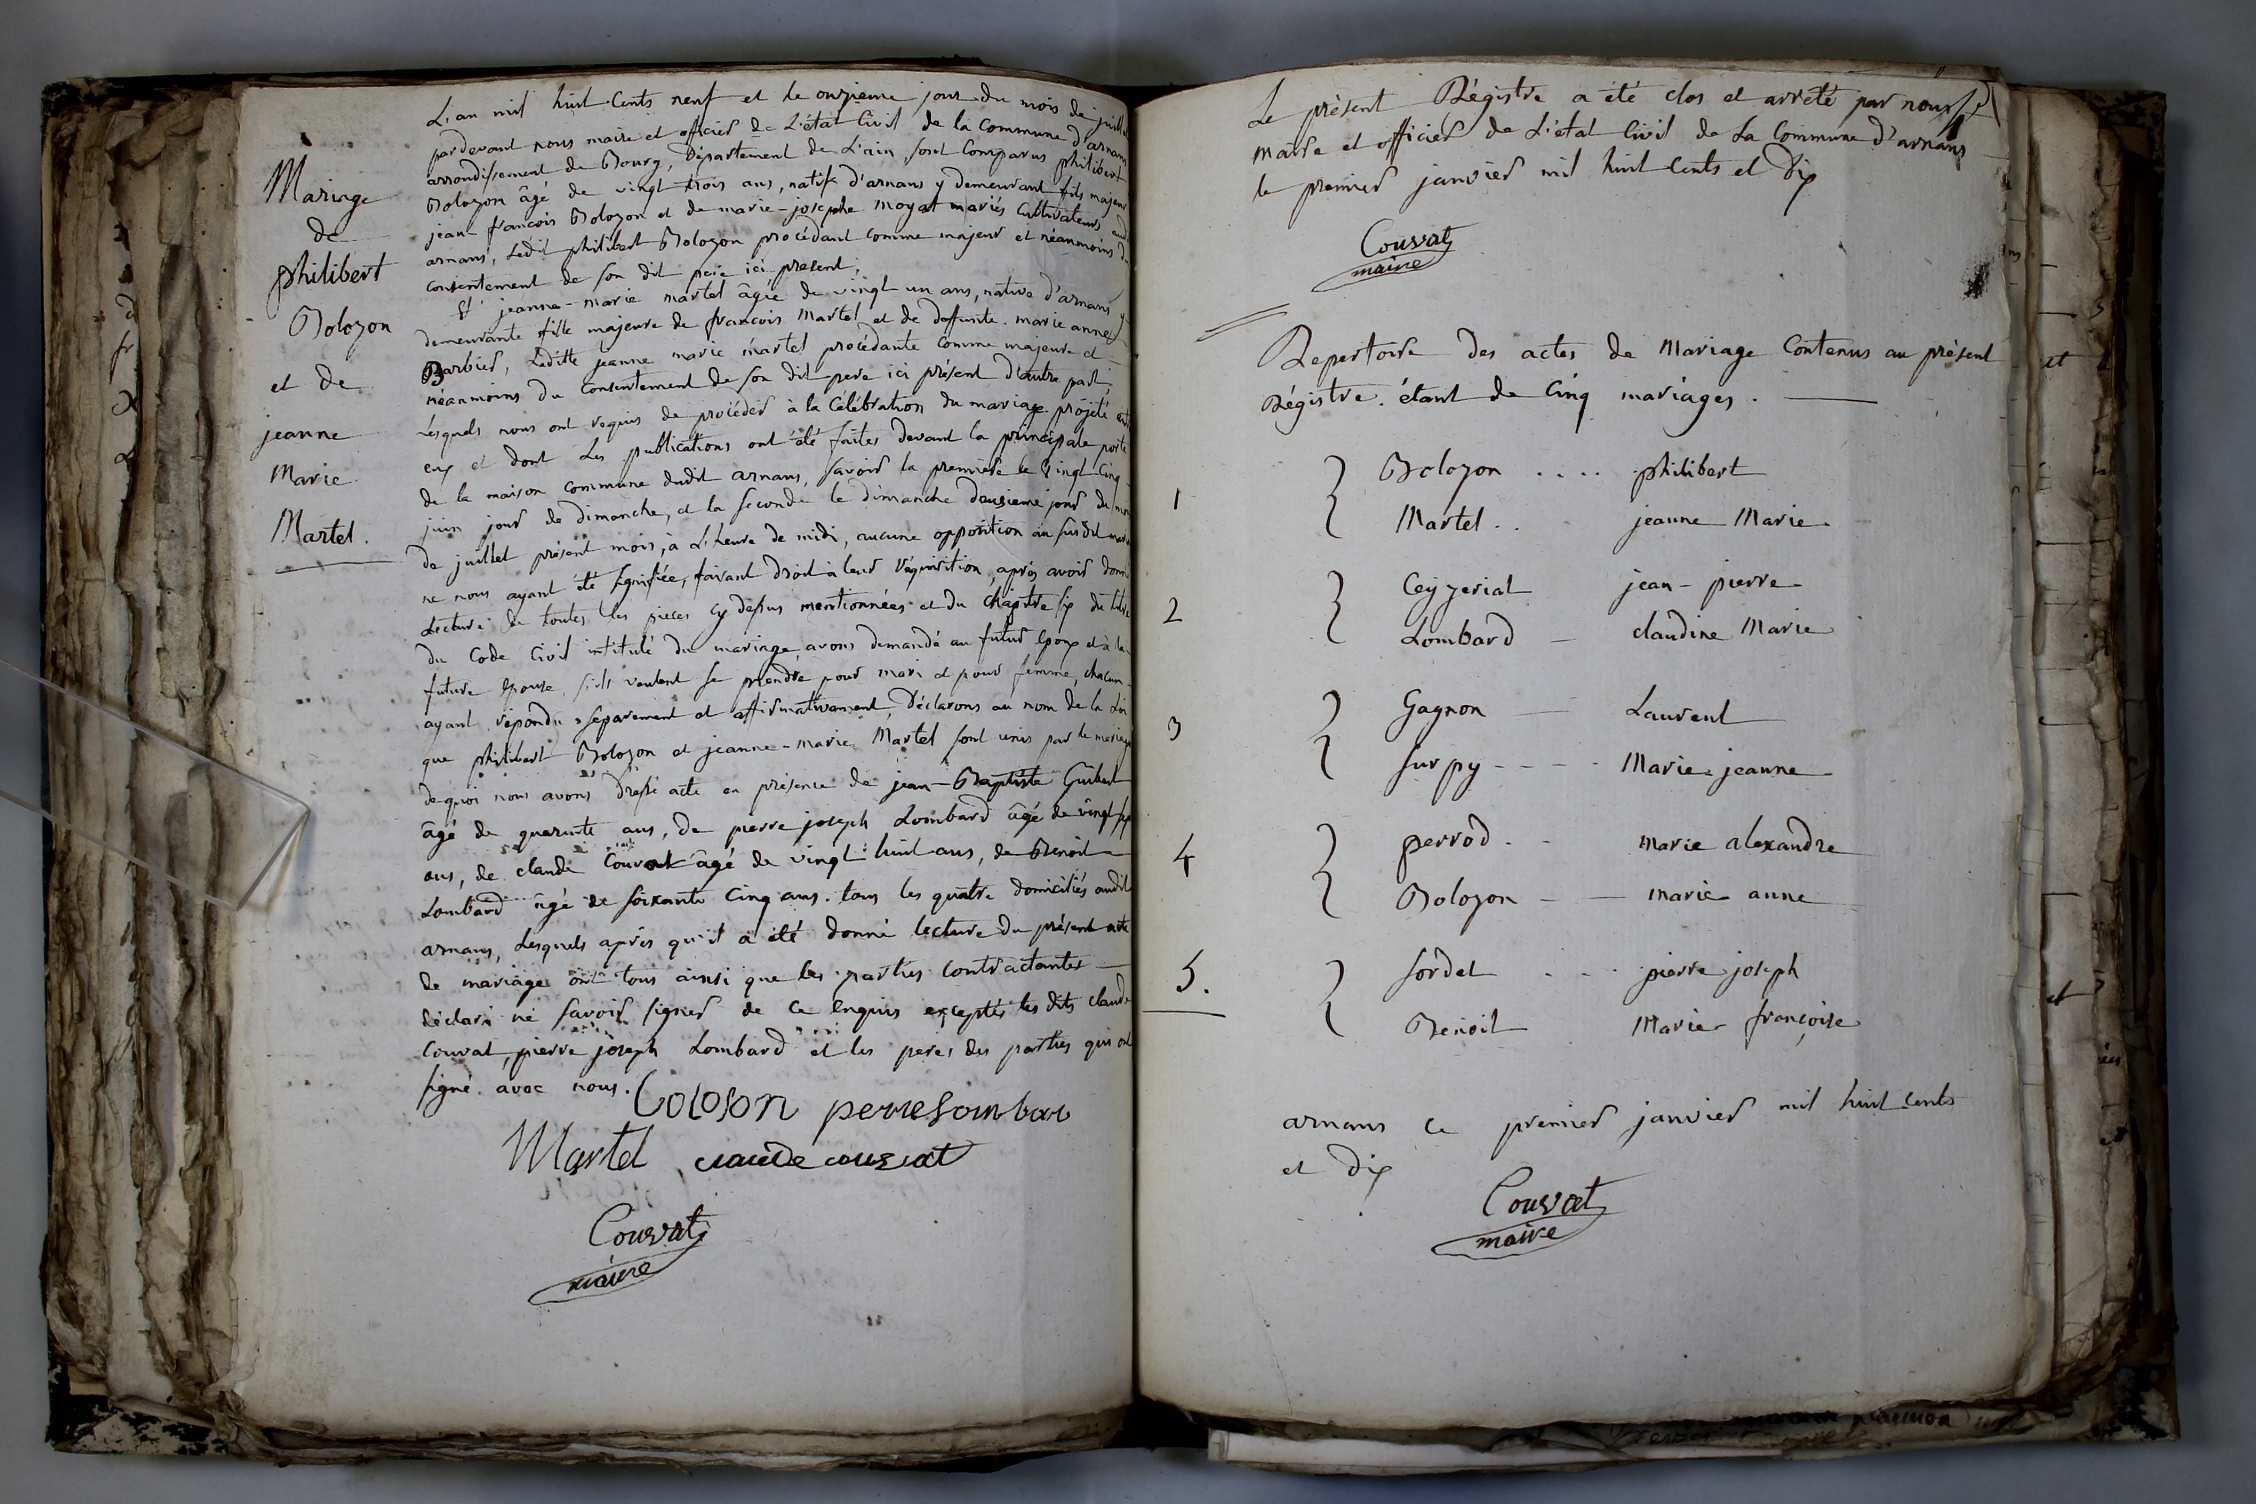 Mariage
de
philibert
Bolozon
et de
jeanne
Marie
Martel.
L'an mil huit Cents neuf et le onzieme jour du mois de juillet
pardevant nous maire et officier de L'état Civil de la Commune d'arnans
arrondissement de Bourg, Département de L'ain sont Comparus philibert
Bolozon âgé de vingt trois ans, natif d'arnans y demeurant fils majeur
jean-francois Bolozon et de marie-josephe moyat mariés Cultivateurs
arnans, Ledit philibert Bolozon procédant comme majeur et néanmoins du
consentement de son dit pere ici present;
Et jeanne-marie martel âgée de vingt un ans, native d'arnans y
demeurante fille majeure de francois Martel et de deffunte marie anne
Barbier, Laditte jeanne marie martel procédante comme majeure et
néanmoins du Consentement de son dit pere ici présent d'autre part;
Lesquels nous ont requis de procéder à la Célébration du mariage projeté
eux et dont Les publications ont été faites devant la principale porte
de la maison commune dudit arnans, savoir la premiere le vingt Cinq
juin jour de dimanche, et la seconde le dimanche deuxieme jour du mois
de juillet présent mois, à L'heure de midi, aucune opposition au susdit
ne nous ayant été signifiée, faisant droit à leur réquisition, après avoir donné
Lecture de toutes les pieces cy dessus mentionnées et du chapitre six du titre
du Code Civil intitulé du mariage, avons demandé au futur Epoux et à la
future Epouse, s'ils veulent se prendre pour mari et pour femme, chacun
ayant répondu séparement et affirmativement, Déclarons au nom de la Loi
que philibert Bolozon et jeanne-marie Martel sont unis par le mariage
de quoi nous avons dressé acte en présence de jean-Baptiste Guibert
âgé de quarante ans, de pierre joseph Lombard âgé de vingt
ans, de claude Couvat âgé de vingt huit ans, de Benoit
Lombard âgé de soixante Cinq ans. tous les quatre domiciliés audit
arnans, Lesquels après qu'il a été donné lecture du présent acte
de mariage ont tous ainsi que les parties contractantes
déclaré ne savoir signer de ce Enquis exceptés les dits claude
Couvat, pierre joseph Lombard et les peres des parties qui ont
signé avec nous.
Boloson
Martel claude couvat
Couvat
maire
Le présent Régistre a été clos et arreté par nous
maire et officier de L'état Civil de La Commune d'arnans
le premier janvier mil huit Cents et dix
Couvat
maire
Repertoire des actes de Mariage Contenus au présent
Régistre. étant de Cinq mariages.
1 Bolozon .... philibert
Martel .. jeanne Marie
2 Ceyzeriat jean-pierre
Lombard - claudine Marie
3 Gagnon - Laurent
surpy ---- Marie jeanne
4 perrod .- marie alexandre
Bolozon -- marie anne
5. sordet .... pierre joseph
Benoit Marie françoise
arnans ce premier janvier mil huit cents
et dix
Couvat
maire